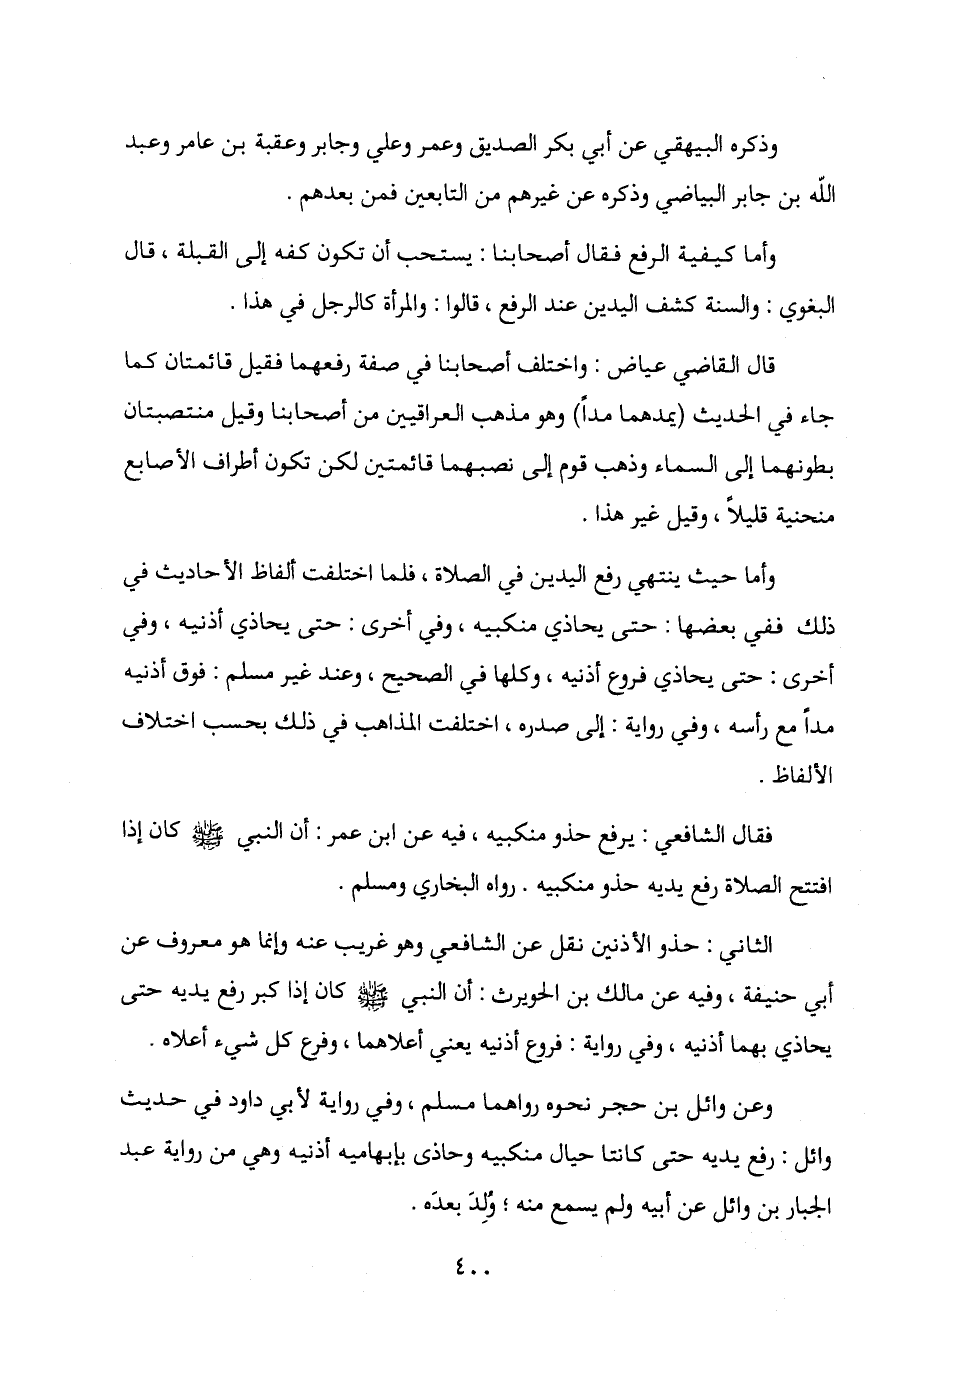 وذكره البيهقي عن أبي بكر الصديق وعمر وعلي وجابر وعقبة بن عامر وعبد
الله بن جابر البياضي وذكره عن غيرهم من التابعين فمن بعدهم .
وأما كيفية الرفع فقال أصحابنا : يستحب أن تكون كفه إلى القبلة ، قال
البغوي : والسنة كشف اليدين عند الرفع ، قالوا : والمرأة كالرجل في هذا .
قال القاضي عياض : واختلف أصحابنا في صفة رفعهما فقيل قائمتان كما
جاء في الحديث (يمدهما مداً) وهو مذهب العراقيين من أصحابنا وقيل منتصبتان
بطونهما إلى السماء وذهب قوم إلى نصبهما قائمتين لكن تكون أطراف الأصابع
منحنية قليلاً ، وقيل غير هذا .
وأما حيث ينتهي رفع اليدين في الصلاة ، فلما اختلفت ألفاظ الأحاديث في
ذلك ففي بعضها : حتى يحاذي منكبيه ، وفي أخرى : حتى يحاذي أذنيه ، وفي
أخرى : حتى يحاذي فروع أذنيه ، وكلها في الصحيح ، وعند غير مسلم : فوق أذنيه
مداً مع رأسه ، وفي رواية : إلى صدره ، اختلفت المذاهب في ذلك بحسب اختلاف
الألفاظ .
فقال الشافعي : يرفع حذو منكبيه ، فيه عن ابن عمر : أن النبي ﷺ كان إذا
افتتح الصلاة رفع يديه حذو منكبيه . رواه البخاري ومسلم .
الثاني : حذو الأذنين نقل عن الشافعي وهو غريب عنه وإنما هو معروف عن
أبي حنيفة ، وفيه عن مالك بن الحويرث : أن النبي ﷺ كان إذا كبر رفع يديه حتى
يحاذي بهما أذنيه ، وفي رواية : فروع أذنيه يعني أعلاهما ، وفرع كل شيء أعلاه .
وعن وائل بن حجر نحوه رواهما مسلم ، وفي رواية لأبي داود في حديث
وائل : رفع يديه حتى كانتا حيال منكبيه وحاذى بإبهاميه أذنيه وهي من رواية عبد
الجبار بن وائل عن أبيه ولم يسمع منه ؛ وُلِدَ بعدَه .
٤٠٠